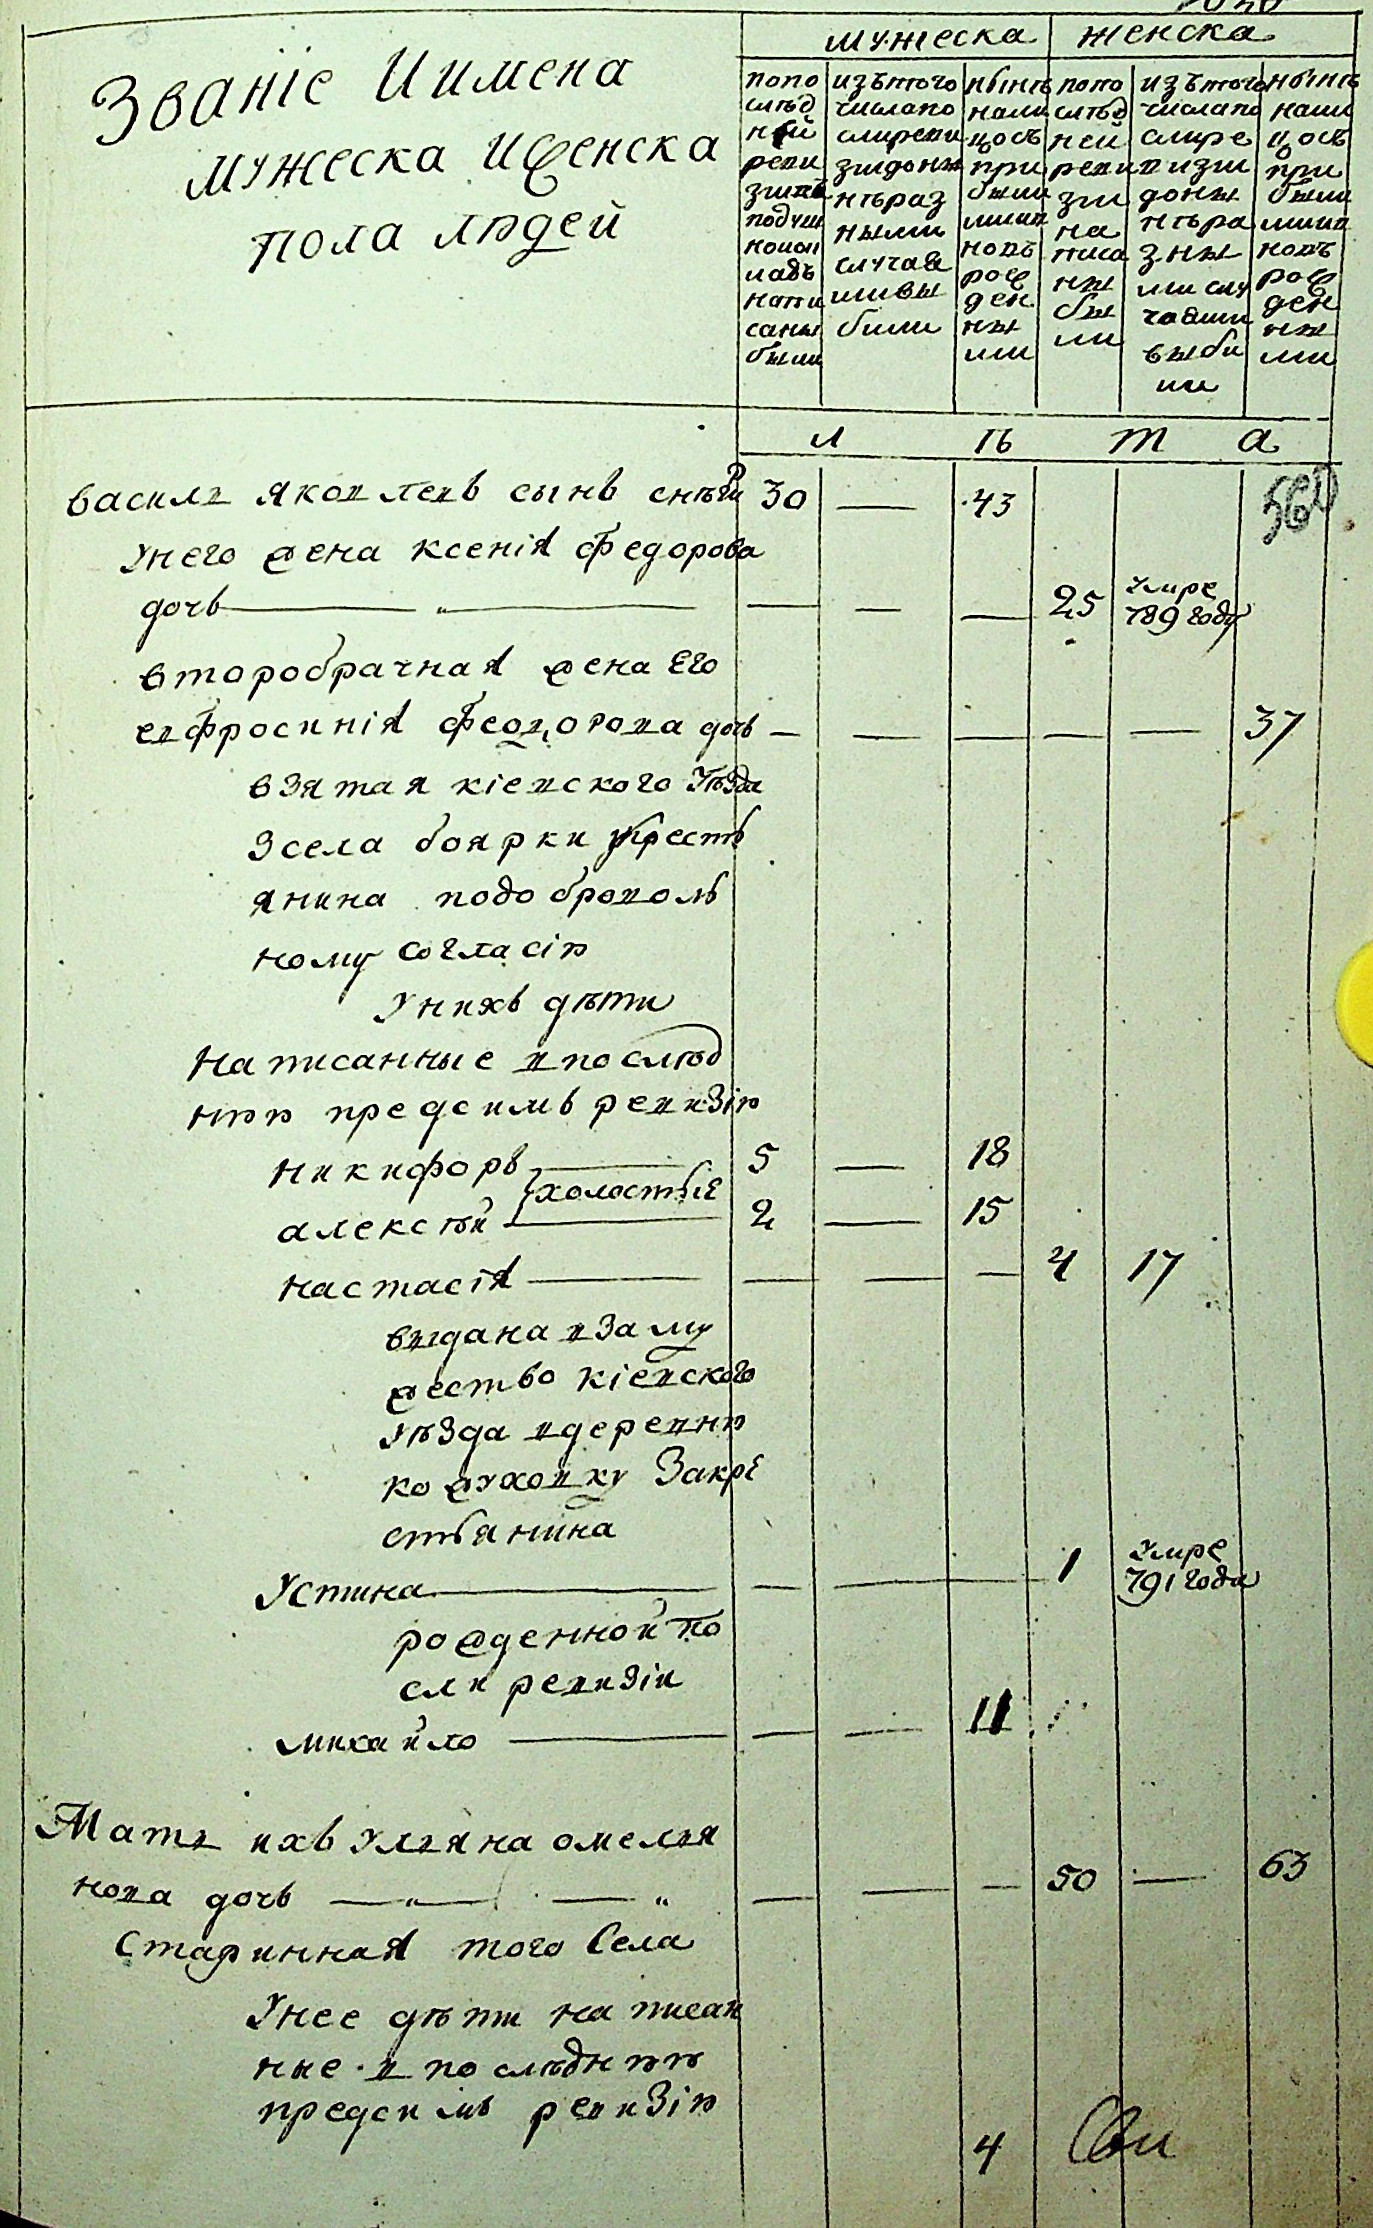 мужеска женска
Званіе Иимена
мужеска иженска
пола людей
попо
слѣд
ней
реви
зіи
подуш
ной
напи
саны
были
изътого
числапо
слиреви
зіидоны
нѣраз
ными
случая
мивы
были
нынѣ
нали
цось
при
были
миив
новь
рож
ден
ны
ми
попо
слѣд
ней
реви
зіи
на
писа
ны
бы
ли
изътого
числапо
слире
визіи
доны
нѣра
зны
ми слу
чаями
выбы
ли
нынѣ
нали
цось
при
были
миив
новь
рож
ден
ны
ми
л ѣ т а
василь яковлевъ сынъ 30 — 43
унего жена ксенія федорова
дочь — „ — — — — 25 умре 789 году
второбрачная жена Его
евфросинія феодорова дочь — — — — — 37
взятая кіевского Уѣзда
зсела боярки укресть
янина подоброволь
ному согласію
Унихъ дѣти
написанные впослѣд
нюю предсимъ ревизію
никифоръ — 5 — 18
холостые
алексѣй — 2 — 15
настасія — — — — 4 17
выдана взаму
жество кіевского
уѣзда вдеревню
кожуховку Закре
стьянина
Устина — — — 1 умре 791 года
рожденной по
сли ревизіи
михайло — — — 11
Мать ихъ ульяна омелья
нова дочь — „ — „ — — — 50 — 63
Старинная того Села
Унее дѣти написан
ные впослѣднюю
предсимъ ревизію
4